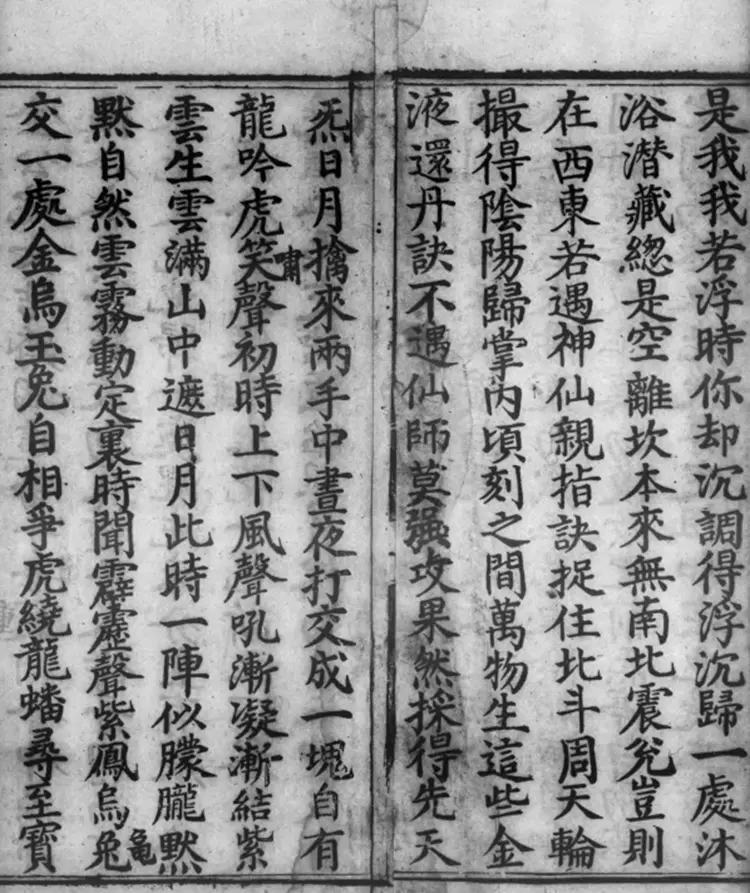 是我我若浮時你却沉調得浮沉歸一處沐
浴潜藏緫是空離坎本來無南北震兊豈則
在西東若遇神仙親指訣捉住北斗周天輪
撮得陰陽歸掌内頃刻之間萬物生這些金
液還丹訣不遇仙師莫强攻果然採得先天
炁日月擒來兩手中晝夜打交成一塊自有
龍吟虎笑嘯聲初時上下風聲吼漸凝漸結紫
雲生雲滿山中遮日月此時一陣似朦朧黙
黙自然雲霧動定裏時聞霹靂聲紫鳳烏兔龜
交一處金烏玉兔自相爭虎繞龍蟠尋至寶